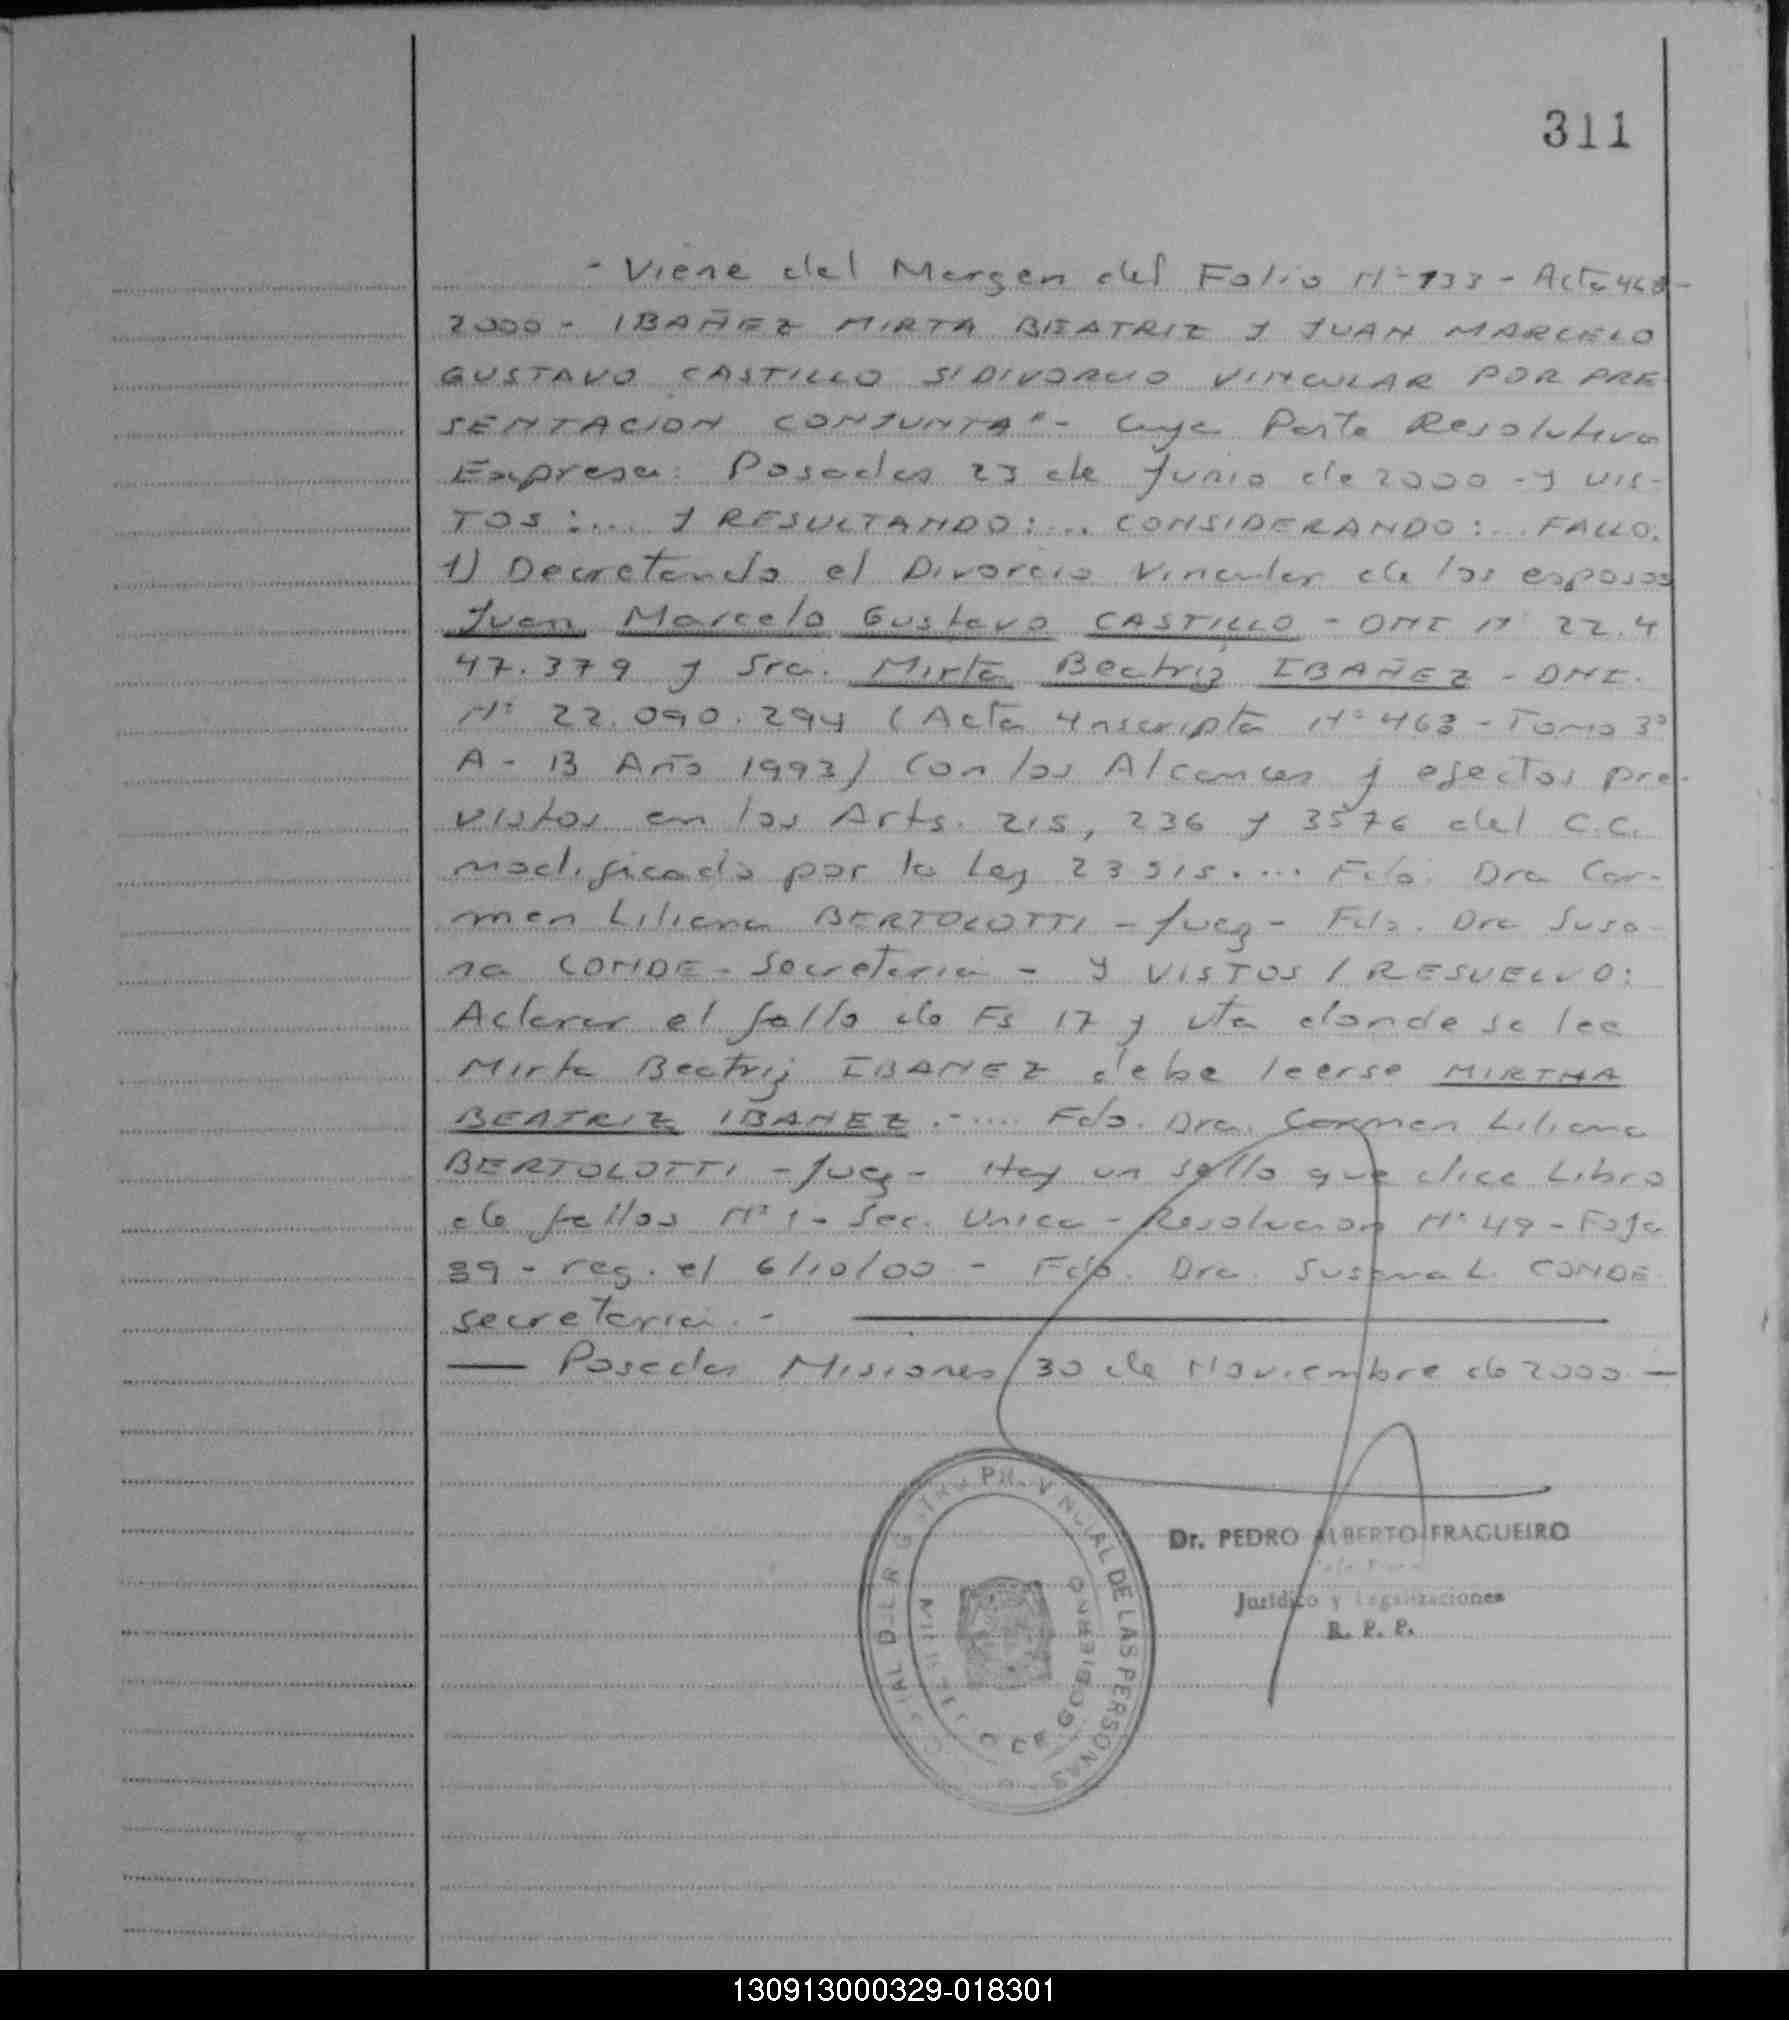 311
- Viene del Margen del Folio Nº 133 - Acta 463-
2000 - IBAÑEZ MIRTA BEATRIZ Y JUAN MARCELO
GUSTAVO CASTILLO S/DIVORCIO VINCULAR POR PRE
SENTACION CONJUNTA"- Cuya Parte Resolutiva
Expresa: Posadas 23 de Junio de 2000 - Y VIS-
TOS:... Y RESULTANDO:... CONSIDERANDO:... FALLO.
1) Decretando el Divorcio Vincular de los esposos
Juan Marcelo Gustavo CASTILLO - DNI Nº 22.4
47.379 y Sra. Mirta Beatriz IBAÑEZ - DNI.
Nº 22.090.294 (Acta Inscripta Nº 463 - Tomo 3º
A - 13 Año 1993) Con los Alcances y efectos pre-
vistos en los Arts. 215, 236 y 3576 del C.C.
modificado por la Ley 23515.... Fdo. Dra Car-
men Liliana BERTOLOTTI - Juez - Fdo. Dra Susa-
na CONDE - Secretaria - Y VISTOS / RESUELVO:
Aclarar el fallo de Fs 17 y vta donde se lee
Mirta Beatriz IBANEZ debe leerse MIRTHA
BEATRIZ IBAÑEZ.-.... Fdo. Dra. Carmen Liliana
BERTOLOTTI - Juez - Hay un sello que dice Libro
de fallos Nº 1 - Sec. Unica - Resolucion Nº 49 - Foja
39 - reg. el 6/10/00 - Fdo. Dra. Susana L. CONDE
secretaria.-
Posadas Misiones 30 de Noviembre de 2000.-
Dr. PEDRO ALBERTO FRAGUEIRO
Jurídico y Legalizaciones
R. P. P.
PROVINCIAL DE LAS PERSONAS
GOBIERNO
130913000329-018301